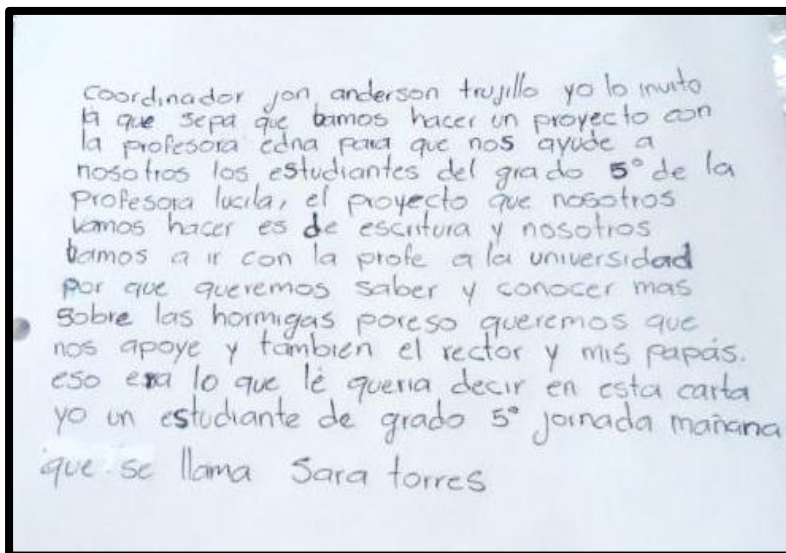 coordinador jon anderson trujillo yo lo invito
a que sepa que bamos hacer un proyecto con
la profesora edna para que nos ayude a
nosotros los estudiantes del grado 5° de la
profesora lucila, el proyecto que nosotros
vamos hacer es de escritura y nosotros
bamos a ir con la profe a la universidad
por que queremos saber y conocer mas
sobre las hormigas poreso queremos que
nos apoye y tambien el rector y mis papás.
eso era lo que lé queria decir en esta carta
yo un estudiante de grado 5° jornada mañana
que se llama Sara torres